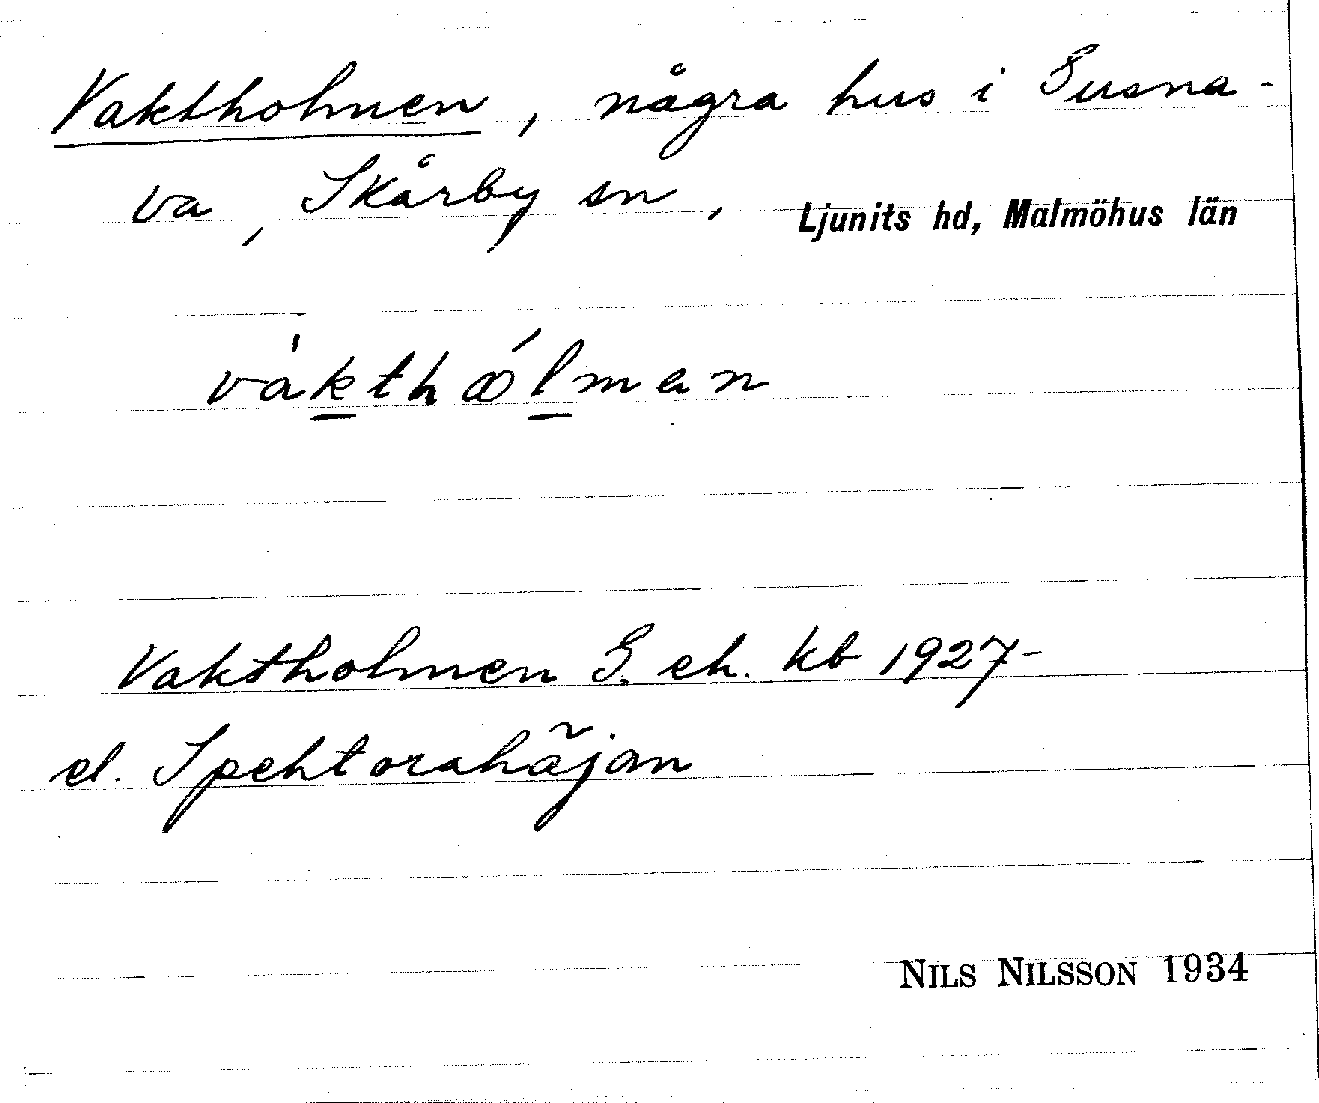 Vaktholmen, några hus i Gusna-
va, Skårby sn, Ljunits hd, Malmöhus län
vàkthólman
Vaktholmen G. ek. kb 1927-
el. Spektorahäjan
NILS NILSSON 1934